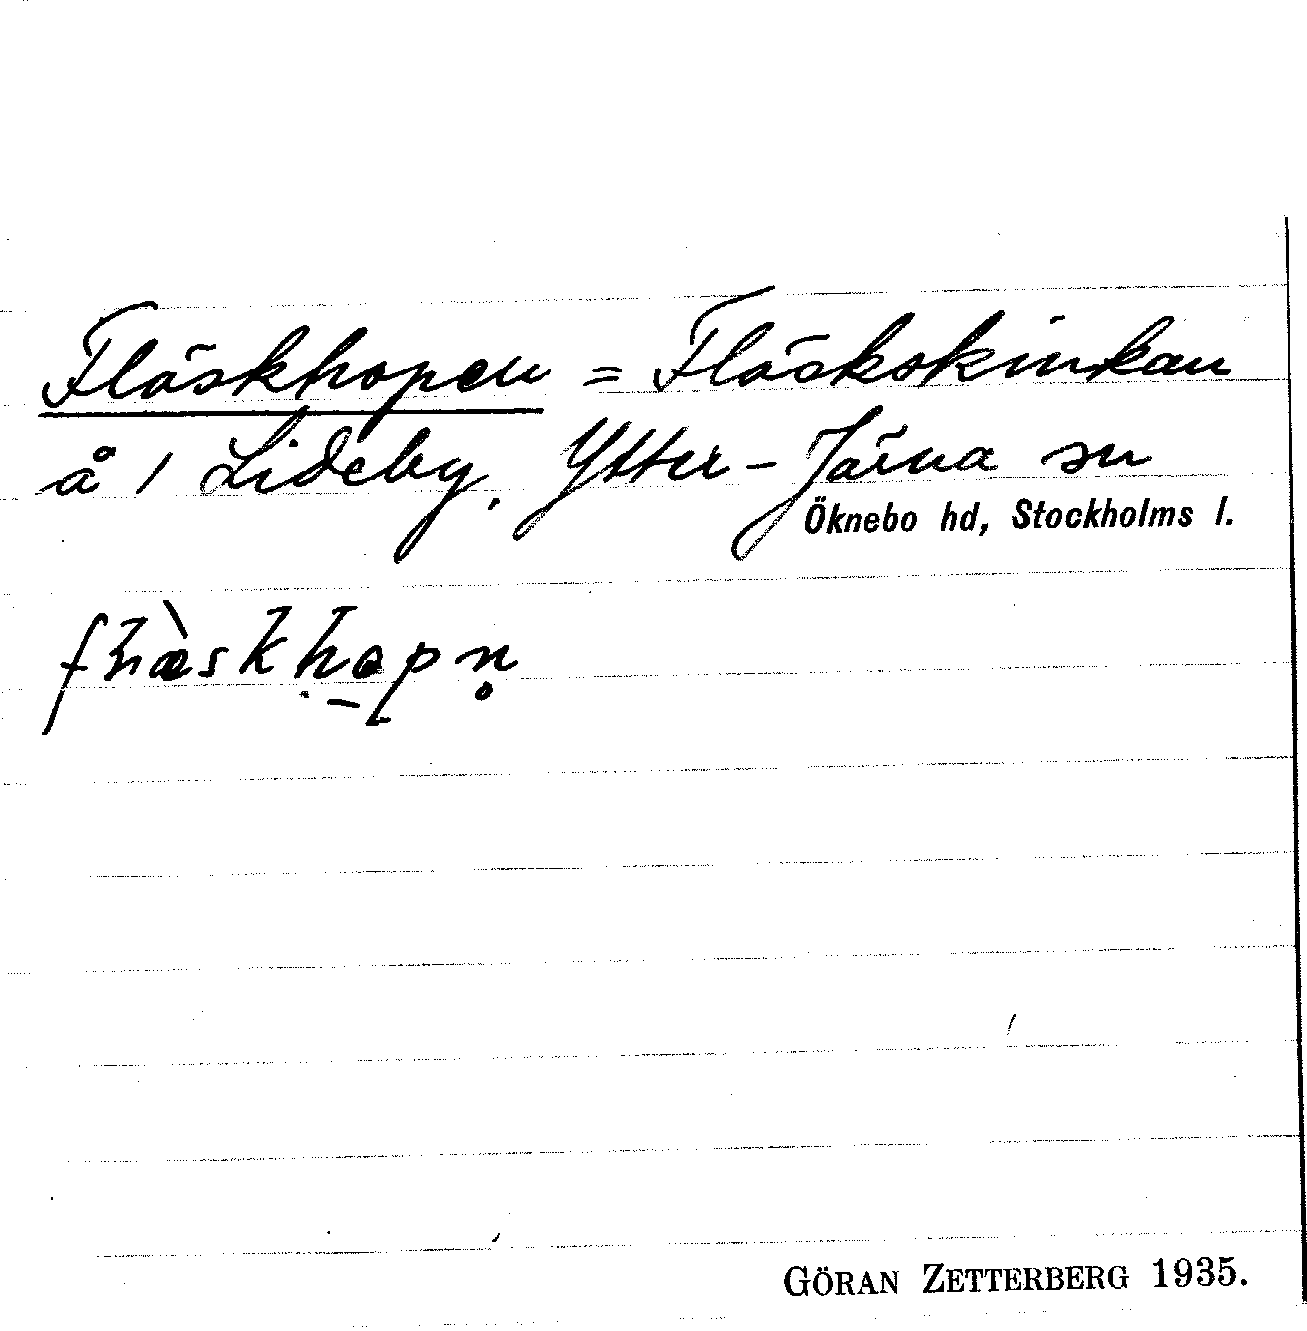 Fläskhopen = Fläskskinkan
å 1 Lideby, Ytter-Järna sn
Öknebo hd, Stockholms l.
GÖRAN ZETTERBERG 1935.